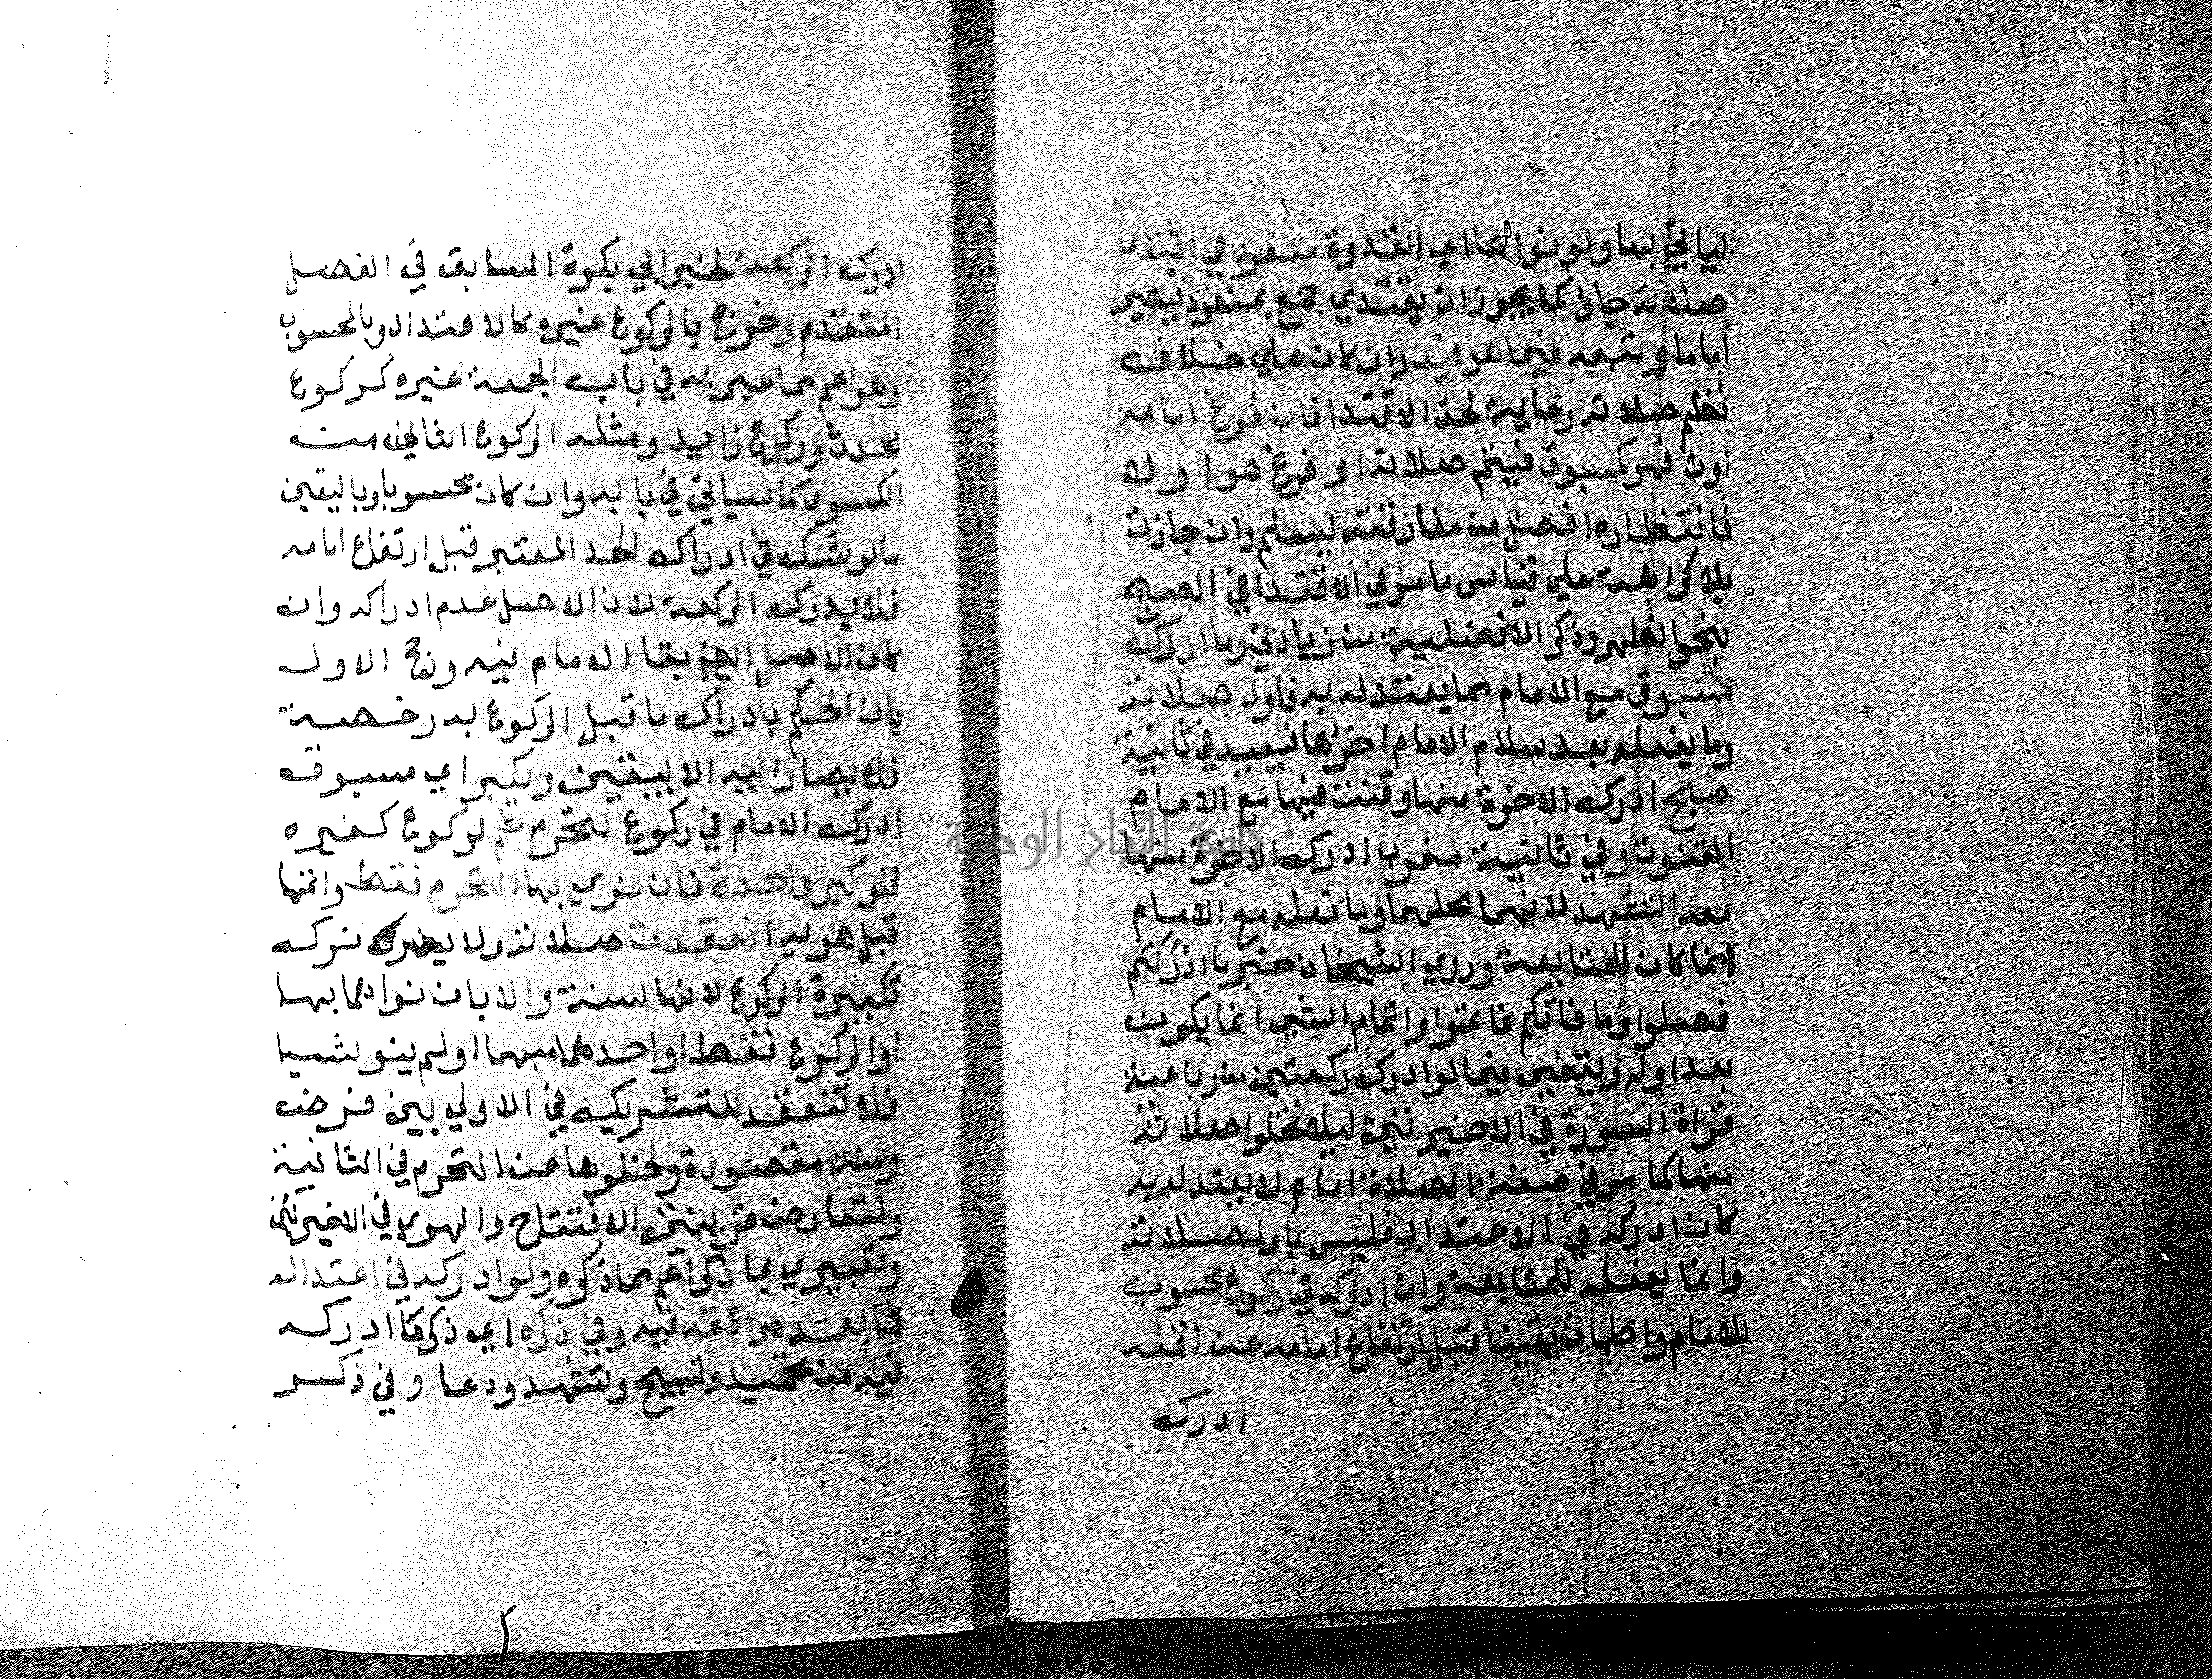 لياتي بها ولو نواها اي القدوة منفرد في اثناء
صلاته جاز كما يجوز ان يقتدي جمع بمنفرد ليصير
اماما وتبعه فيما هو فيه وان كان علي خلاف
نظم صلاته رعاية لحق الاقتدا فان فرغ امامه
اولا فهو كمسبوق فيتم صلاته او فرغ هو اولا
فانتظاره افضل من مفارقته ليسلم وان جازت
بلا كراهة علي قياس ما مر في الاقتدا في الصبح
بنحو الظهر وذكر الافضلية من زيادتي وما ادرك
مسبوق مع الامام مما يعتد له به فاول صلاته
وما يفعله بعد سلام الامام اخرها فيعيد في ثانية
صبح ادرك الاخرة منها وقنت فيها مع الامام
القنوت وفي ثانية مغرب ادرك الاخرة منها
معه التشهد لانهما محلهما وما فعله مع الامام
انما كان للمتابعة وروي الشيخان خبر ما ادركتم
فصلوا وما فاتكم فاتموا واتمام الشي انما يكون
بعد اوله ويقضي فيما لو ادرك ركعتين من رباعية
قراة السورة في الاخيرتين ليلا تخلوا صلاته
منها كما مر في صفة الصلاة اما م لا يعتد له به
كان ادركه في الاعتدال فليس باول صلاته
وانما يفعله للمتابعة وان ادركه في ركوع محسوب
للامام واطمان يقينا قبل ارتفاع امامه عن اقله
ادرك
ادرك الركعة لخبر ابي بكرة السابق في الفصل
المتقدم وخرج بالركوع غيره كالاعتدال وبالمحسوب
وهو اعم مما عبر به في باب الجمعة غيره كركوع
محدث وركوع زايد ومثله الركوع الثاني من
الكسوف كما سياتي في بابه وان كان محسوبا وباليقين
ما لو شك في ادراك الحد المعتبر قبل ارتفاع امامه
فلا يدرك الركعة لان الاصل عدم ادراكه وان
كان الاصل ايضا بقا الامام فيه ورجح الاول
بان الحكم بادراك ما قبل الركوع به رخصة
فلا يصار اليه الا بيقين ويكبر اي مسبوق
ادرك الامام في ركوع لتحرم ثم لركوع كغيره
فلو كبر واحدة فان نوي بها التحرم فقط واتمها
قبل هويه انعقدت صلاته ولا يضر ترك
تكبيرة الركوع لانها سنة والا بان نواهما بها
او الركوع فقط او احدهما مبهما او لم ينو شيا
فلا تنعقد للتشريك في الاولي بين فرض
وسنة مقصودة ولخلوها عن التحرم في الثانية
ولتعارض قرينتي الافتتاح والهوي في الاخيرتين
وتعبيري بما ذكر اعم مما ذكره ولو ادركه في اعتداله
فما بعده وافقه فيه وفي ذكره اي ذكر ما ادركه
فيه من تحميد وتسبيح وتشهد ودعا وفي ذكر